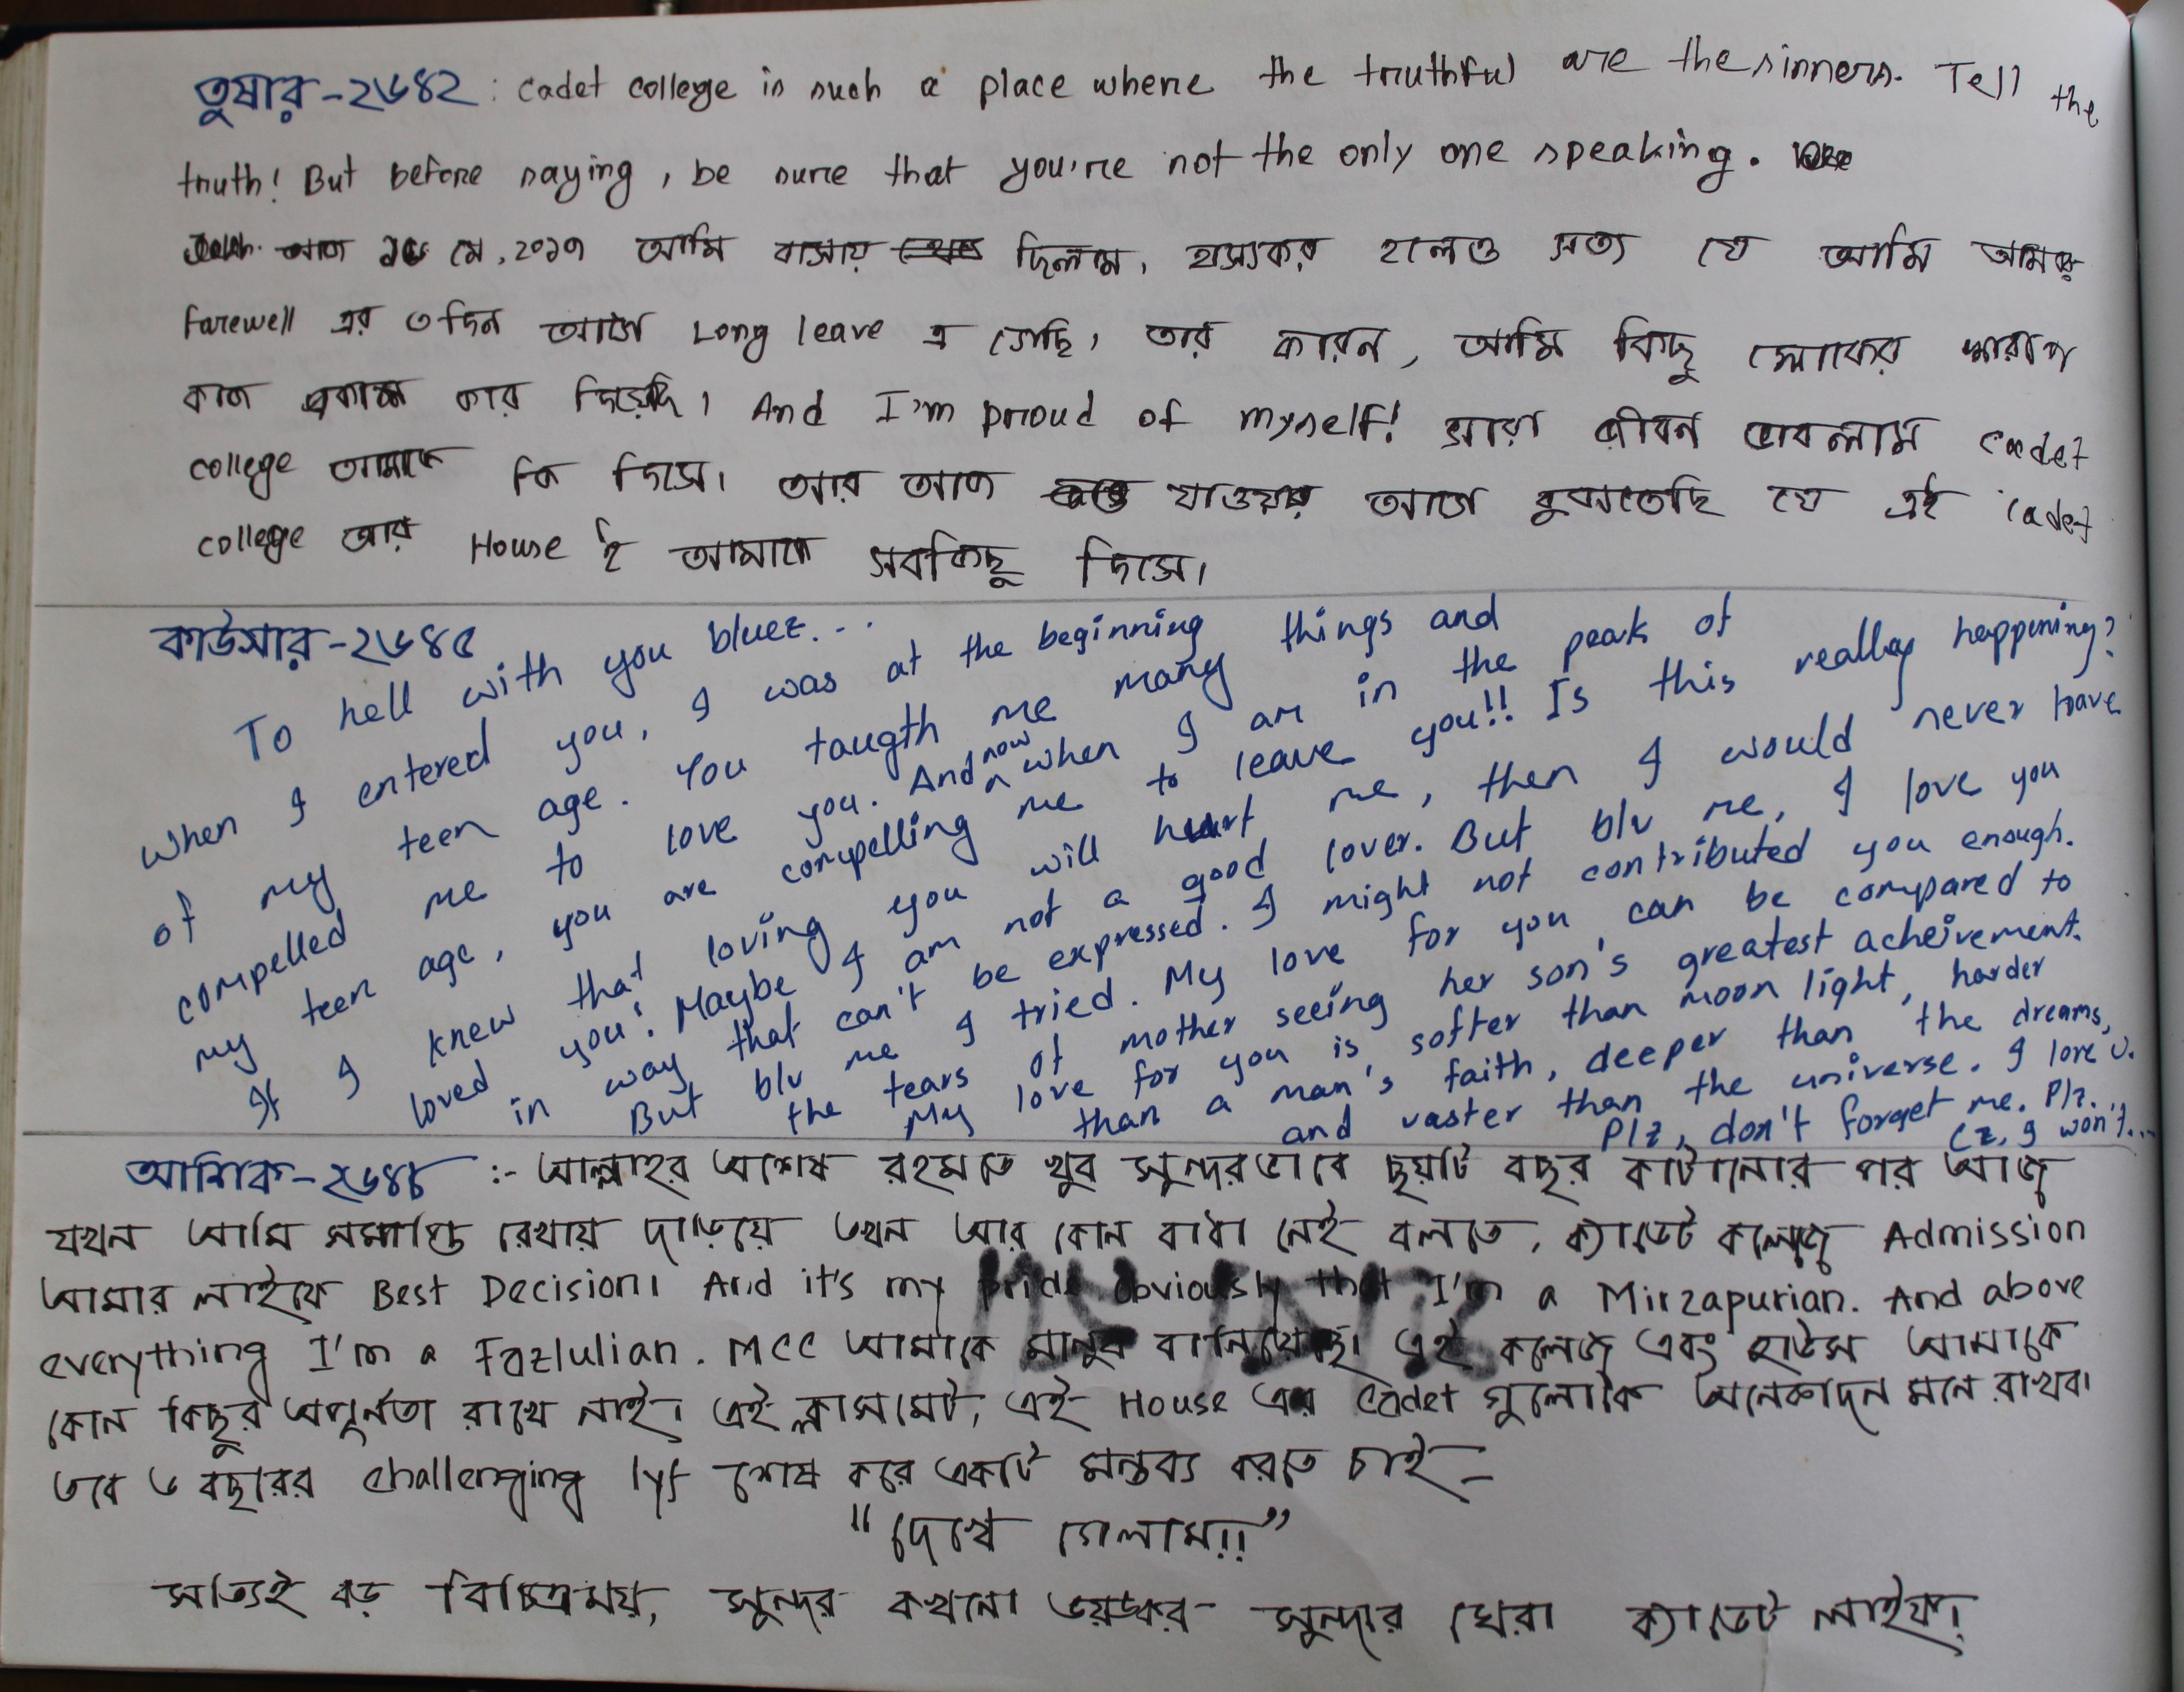 তুষার-২৬৪২ : cadet college is such a place where the truthful are the sinners. Tell the
truth! But before saying, be sure that you're not the only one speaking.
মে, ২০১৭ আমি বাসায় ছিলাম। হাস্যকর হলেও সত্য যে আমি আমার
farewell এর ৩ দিন আগে Long leave এ গেছি। তার কারন, আমি কিছু লোকের খারাপ
কাজ প্রকাশ করে দিয়েছি। And I'm proud of myself! সারা জীবন ভাবলাম cadet
college আমাকে কি দিসে। আর আজ যাওয়ার আগে বুঝতেছি যে এই cadet
college আর House ই আমাকে সবকিছু দিসে।
কাউসার-২৬৪৫
To hell with you bluez...
When I entered you, I was at the beginning
of my teen age. You taugth me many things and
compelled me to love you. And now when I am in the peak of
my teen age, you are compelling me to leave you!! Is this really happening?
If I knew that loving you will heart me, then I would never have
loved you! Maybe I am not a good lover. But blv me, I love you
in way that can't be expressed. I might not contributed you enough.
But blv me I tried. My love for you can be compared to
the tears of mother seeing her son's greatest acheivement.
My love for you is softer than moon light, harder
than a man's faith, deeper than the dreams,
and vaster than the universe. I love U.
Plz, don't forget me. Plz.
Cz, I won't...
আশিক-২৬৪৮ :- আল্লাহর অশেষ রহমতে খুব সুন্দরভাবে ছয়টি বছর কাটানোর পর আজ
যখন আমি সমাপ্তি রেখায় দাড়িয়ে তখন আর কোন বাধা নেই বলতে, ক্যাডেট কলেজে Admission
আমার লাইফে Best Decision। And it's my pride obviously that I'm a Mirzapurian. And above
everything I'm a Fazlulian. MCC আমাকে মানুষ বানিয়েছে। এই কলেজ এবং হাউস আমাকে
কোন কিছুর অপূর্নতা রাখে নাই। এই ক্লাসমেট, এই House এর Cadet গুলোকে অনেকদিন মনে রাখব।
তবে ৬ বছরের challenging lyf শেষ করে একটি মন্তব্য করতে চাই-
"দেখে গেলাম!!"
সত্যিই বড় বিচিত্রময়, সুন্দর কখনো ভয়ঙ্কর সুন্দরে ঘেরা ক্যাডেট লাইফ!